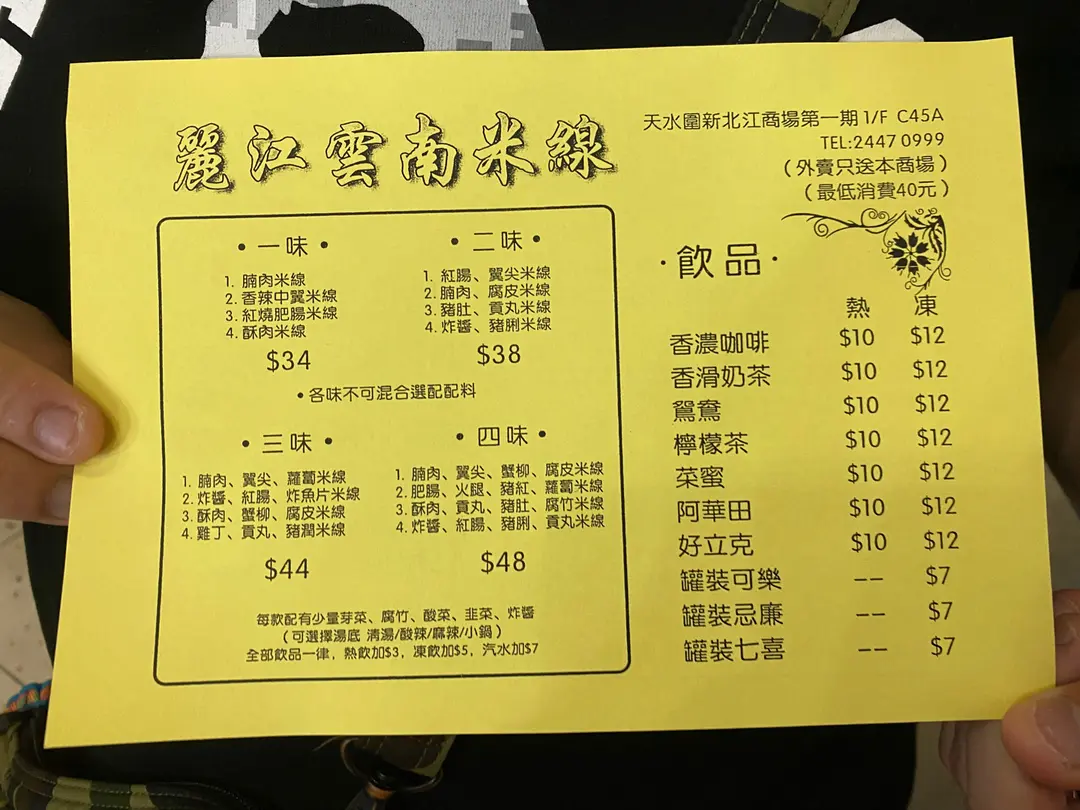 麗江雲南米線
天水圍新北江商場第一期 1/F C45A
TEL:2447 0999
(外賣只送本商場)
(最低消費40元)
• 一味 •
1. 腩肉米線
2. 香辣中翼米線
3. 紅燒肥腸米線
4. 酥肉米線
$34
• 二味 •
1. 紅腸、翼尖米線
2. 腩肉、腐皮米線
3. 豬肚、貢丸米線
4. 炸醬、豬脷米線
$38
• 各味不可混合選配配料
• 三味 •
1. 腩肉、翼尖、蘿蔔米線
2. 炸醬、紅腸、炸魚片米線
3. 酥肉、蟹柳、腐皮米線
4. 雞丁、貢丸、豬潤米線
$44
• 四味 •
1. 腩肉、翼尖、蟹柳、腐皮米線
2. 肥腸、火腿、豬紅、蘿蔔米線
3. 酥肉、貢丸、豬肚、腐竹米線
4. 炸醬、紅腸、豬脷、貢丸米線
$48
每款配有少量芽菜、腐竹、酸菜、韭菜、炸醬
(可選擇湯底 清湯/酸辣/麻辣/小鍋)
全部飲品一律, 熱飲加$3, 凍飲加$5, 汽水加$7
· 飲品 ·
熱 凍
香濃咖啡 $10 $12
香滑奶茶 $10 $12
鴛鴦 $10 $12
檸檬茶 $10 $12
菜蜜 $10 $12
阿華田 $10 $12
好立克 $10 $12
罐裝可樂 -- $7
罐裝忌廉 -- $7
罐裝七喜 -- $7